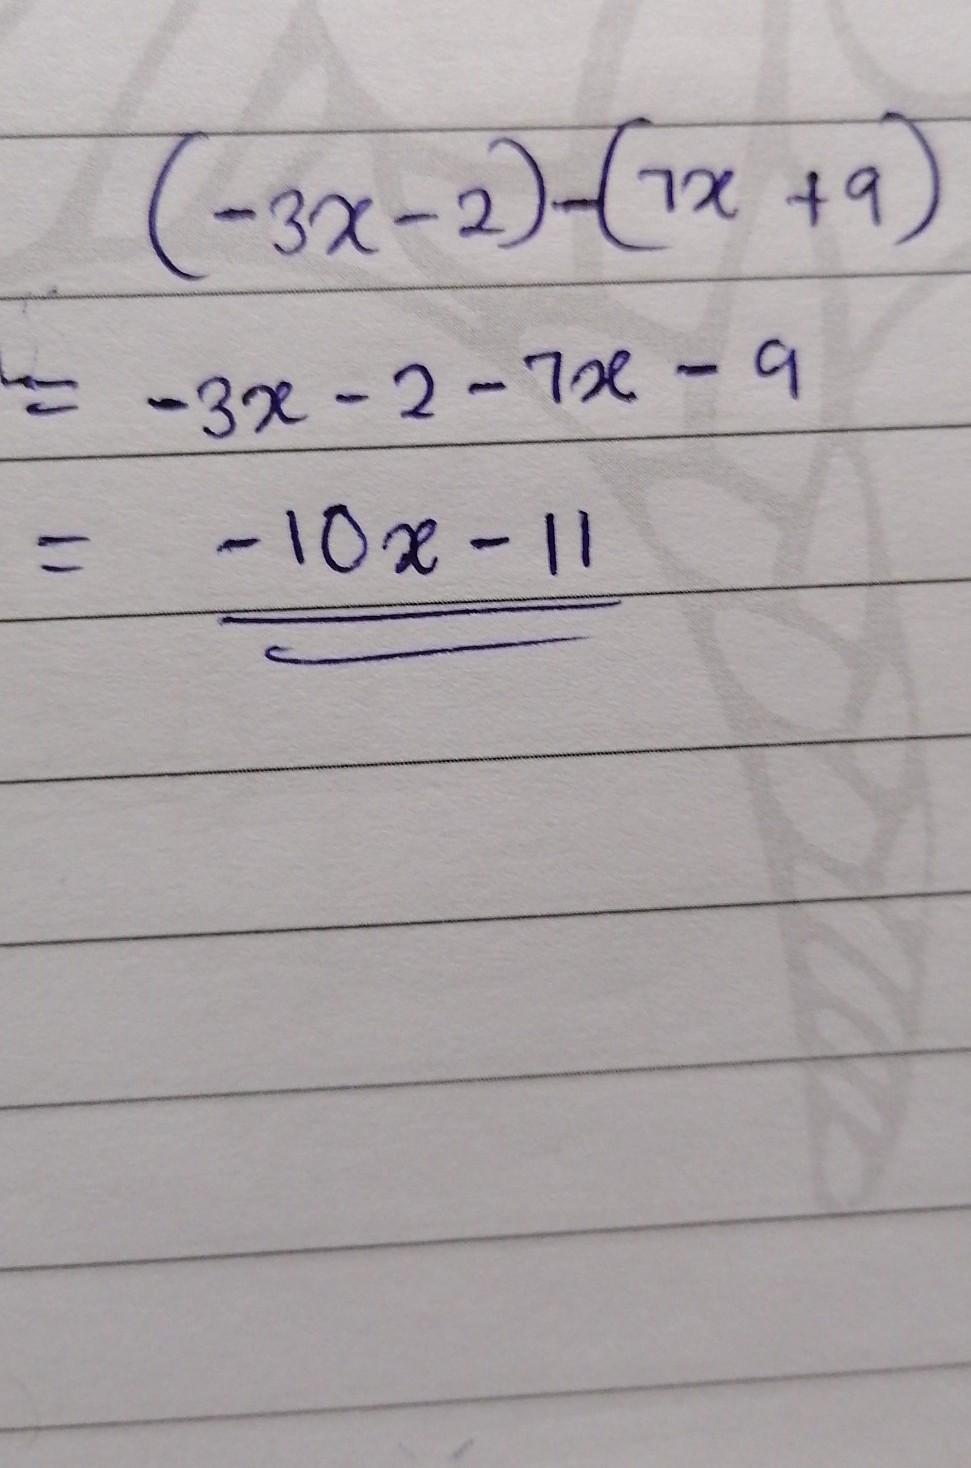 (-3x-2)-(7x+9)
= -3x-2-7x-9
= -10x-11